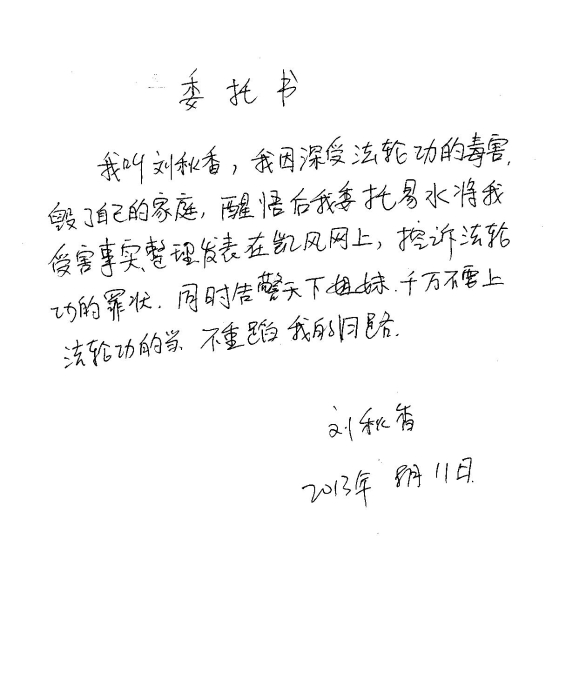 委托书
我叫刘秋香，我因深受法轮功的毒害，
毁了自己的家庭，醒悟后我委托易水将我
受害事实整理发表在凯风网上，控诉法轮
功的罪状．同时告警天下姐妹．千万不要上
法轮功的当 不重蹈我的旧路．
刘秋香
2013年 8月 11日